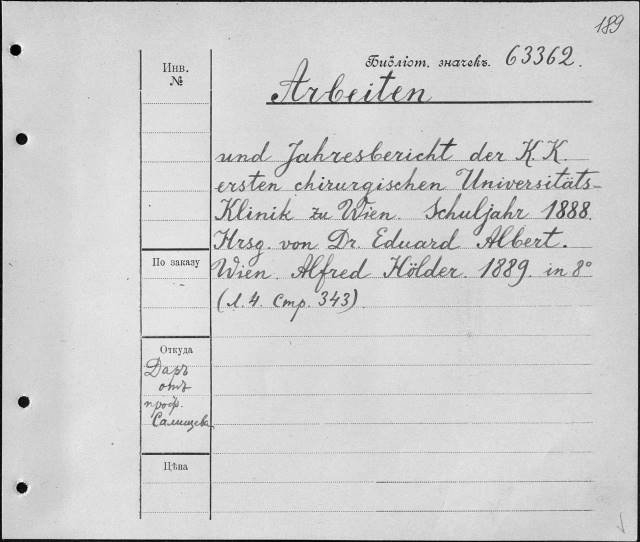 189
Библіот. значекъ. 63362.
Инв.
№
Arbeiten
und Jahresbericht der K. K.
ersten chirurgischen Universitäts-
Klinik zu Wien. Schuljahr 1888.
Hrsg. von Dr. Eduard Albert.
Wien. Alfred Hölder. 1889. in 8°
(л. 4. Стр. 343)
По заказу
Откуда
Даръ
отъ
проф.
Салищева
Цѣна